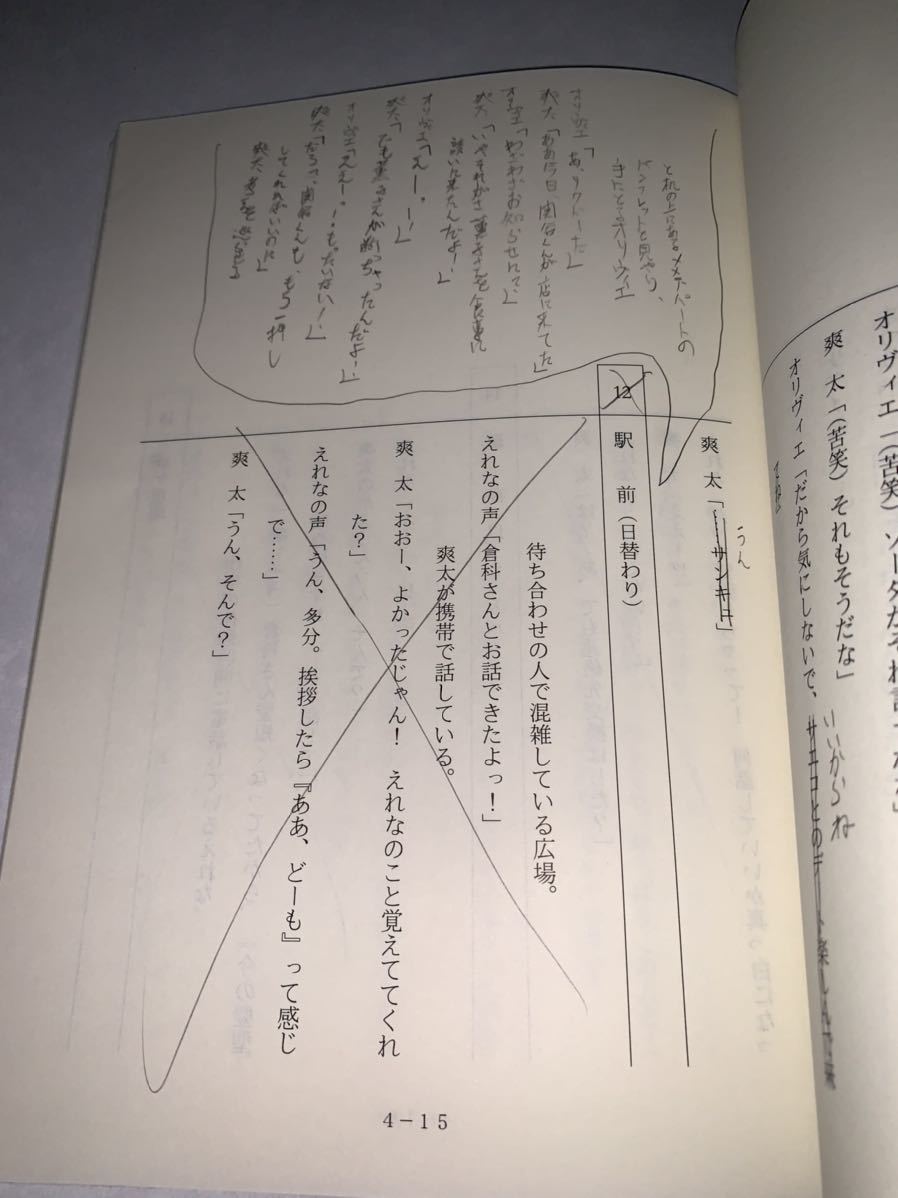 オリヴィエ「(苦笑)ソータがそれ言う
爽　太「(苦笑)それもそうだな」
いいからね
オリヴィエ「だから気にしないで、サエコとのデート楽しんで来
てね」
うん
爽　太「……サンキュ」
12　駅　前（日替わり）
待ち合わせの人で混雑している広場。
えれなの声「倉科さんとお話できたよっ！」
爽太が携帯で話している。
爽　太「おおー、よかったじゃん！　えれなのこと覚えててくれ
た？」
えれなの声「うん、多分。挨拶したら『ああ、どーも』って感じ
で……」
爽　太「うん、そんで？」
と机の上にあるメメデパートの
パンフレットを見やり、
手にとるオリヴィエ
オリヴィエ「あ、リクドーだ」
爽太「ああ今日関谷くんが店に来てた」
オリヴィエ「わざわざお知らせに？」
爽太「いやそれがさ薫子さんを食事に
誘いに来たんだよー」
オリヴィエ「えー。！」
爽太「でも薫子さんが断っちゃったんだよー」
オリヴィエ「ええー。！もったいない！」
爽太「だろ？関谷くんも、もう一押し
してくれればいいのに」
爽太
4－15